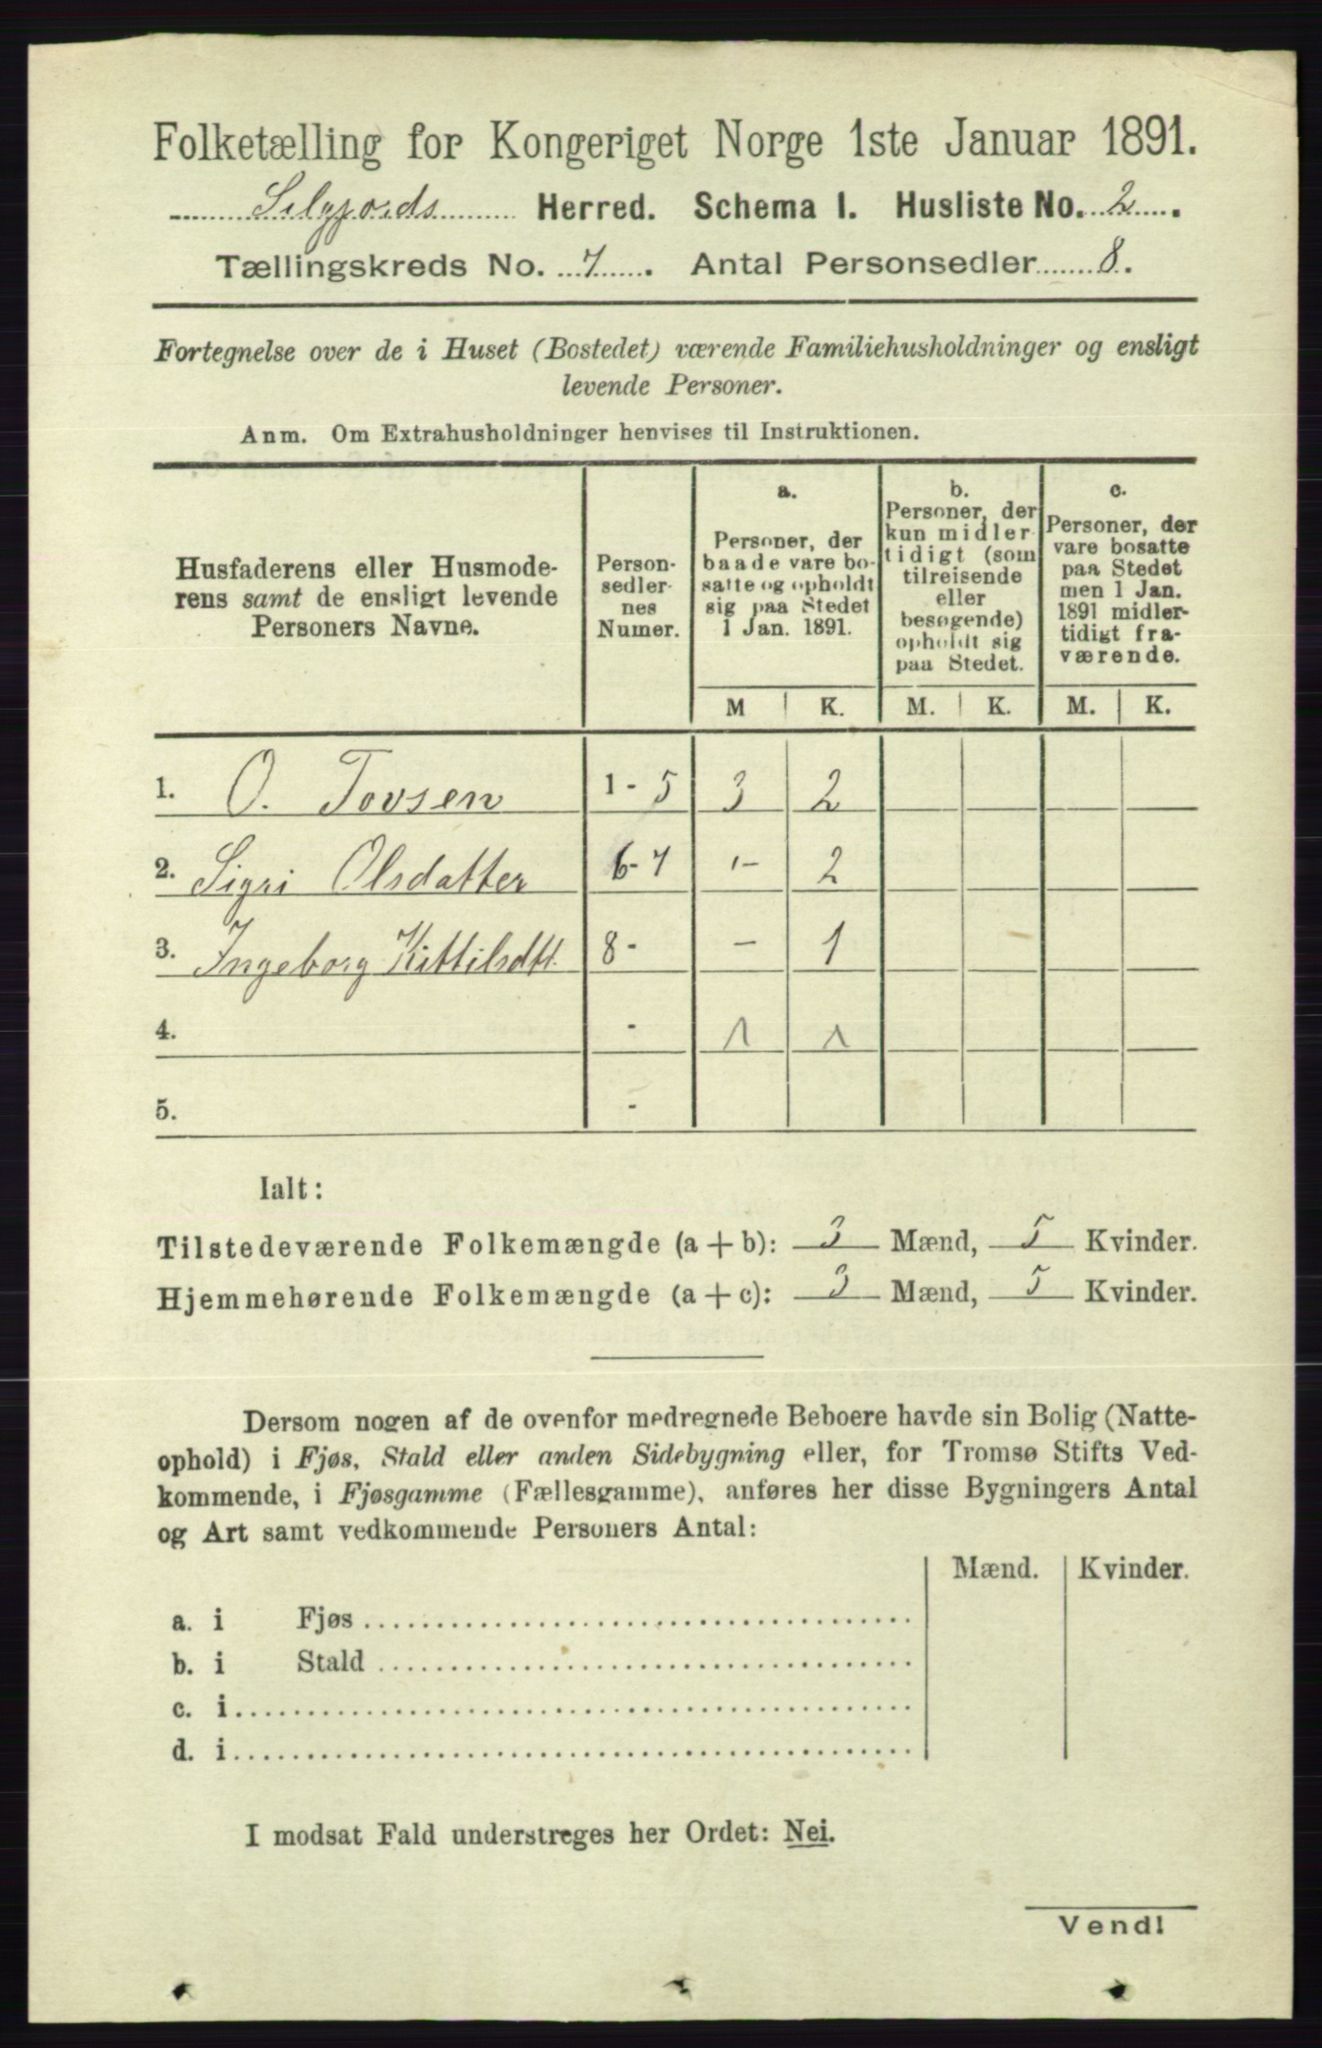 Folketælling for Kongeriget Norge 1ste Januar 1891.
Selgjords Herred. Schema I. Husliste No. 2.
Tællingskreds No. 7. Antal Personsedler 8.
Fortegnelse over de i Huset (Bostedet) værende Familiehusholdninger og ensligt
levende Personer.
Anm. Om Extrahusholdninger henvises til Instruktionen.
Husfaderens eller Husmode-
rens samt de ensligt levende
Personers Navne.
Person-
sedler-
nes
Numer.
a.
Personer, der
baade vare bo-
satte og opholdt
sig paa Stedet
1 Jan. 1891.
b.
Personer, der
kun midler-
tidigt (som
tilreisende
eller
besøgende)
opholdt sig
paa Stedet.
c.
Personer, der
vare bosatte
paa Stedet
men 1 Jan.
1891 midler-
tidigt fra-
værende.
M K. M. K. M. K.
1. O. Tovsen 1 - 5 3 2
2. Sigri Olsdatter 6 - 7 - 2
3. Ingeborg Kittilsdtt. 8 - - 1
4. - 1 1
5. -
Ialt:
Tilstedeværende Folkemængde (a + b): 3 Mænd, 5 Kvinder.
Hjemmehørende Folkemængde (a + c): 3 Mænd, 5 Kvinder.
Dersom nogen af de ovenfor medregnede Beboere havde sin Bolig (Natte-
ophold) i Fjøs, Stald eller anden Sidebygning eller, for Tromsø Stifts Ved-
kommende, i Fjøsgamme (Fællesgamme), anføres her disse Bygningers Antal
og Art samt vedkommende Personers Antal:
Mænd. Kvinder.
a. i Fjøs
b. i Stald
c. i
d. i
I modsat Fald understreges her Ordet: Nei.
Vend!